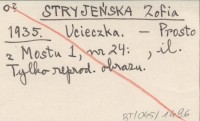 STRYJEŃSKA Zofia
1935. Ucieczka. - Prosto
z Mostu 1, nr 24: , il.
Tylko reprod. obrazu.